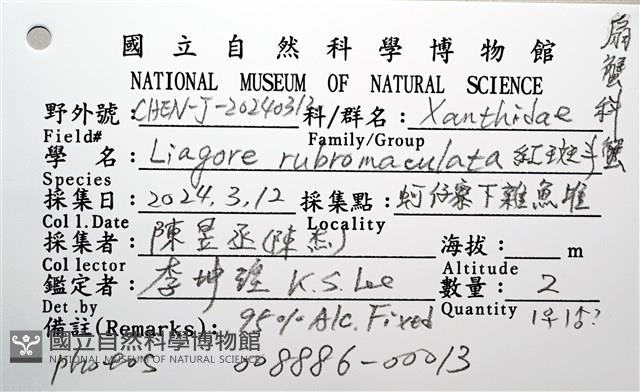 國立自然科學博物館
NATIONAL MUSEUM OF NATURAL SCIENCE
野外號:CHEN-J-20240312 科/群名: Xanthidae 扇蟹科
Field# Family/Group
學 名: Liagore rubromaculata 紅斑斗蟹
Species
採集日: 2024.3.12 採集點: 蚵仔寮下雜魚堆
Coll.Date Locality
採集者: 陳昱丞(陳杰) 海拔: m
Collector Altitude
鑑定者: 李坤瑄 K.S. Lee 數量: 2
Det.by Quantity 1♀1♂?
備註(Remarks): 95% Alc. Fixed
國立自然科學博物館
NATIONAL MUSEUM OF NATURAL SCIENCE
photos 008886-00013